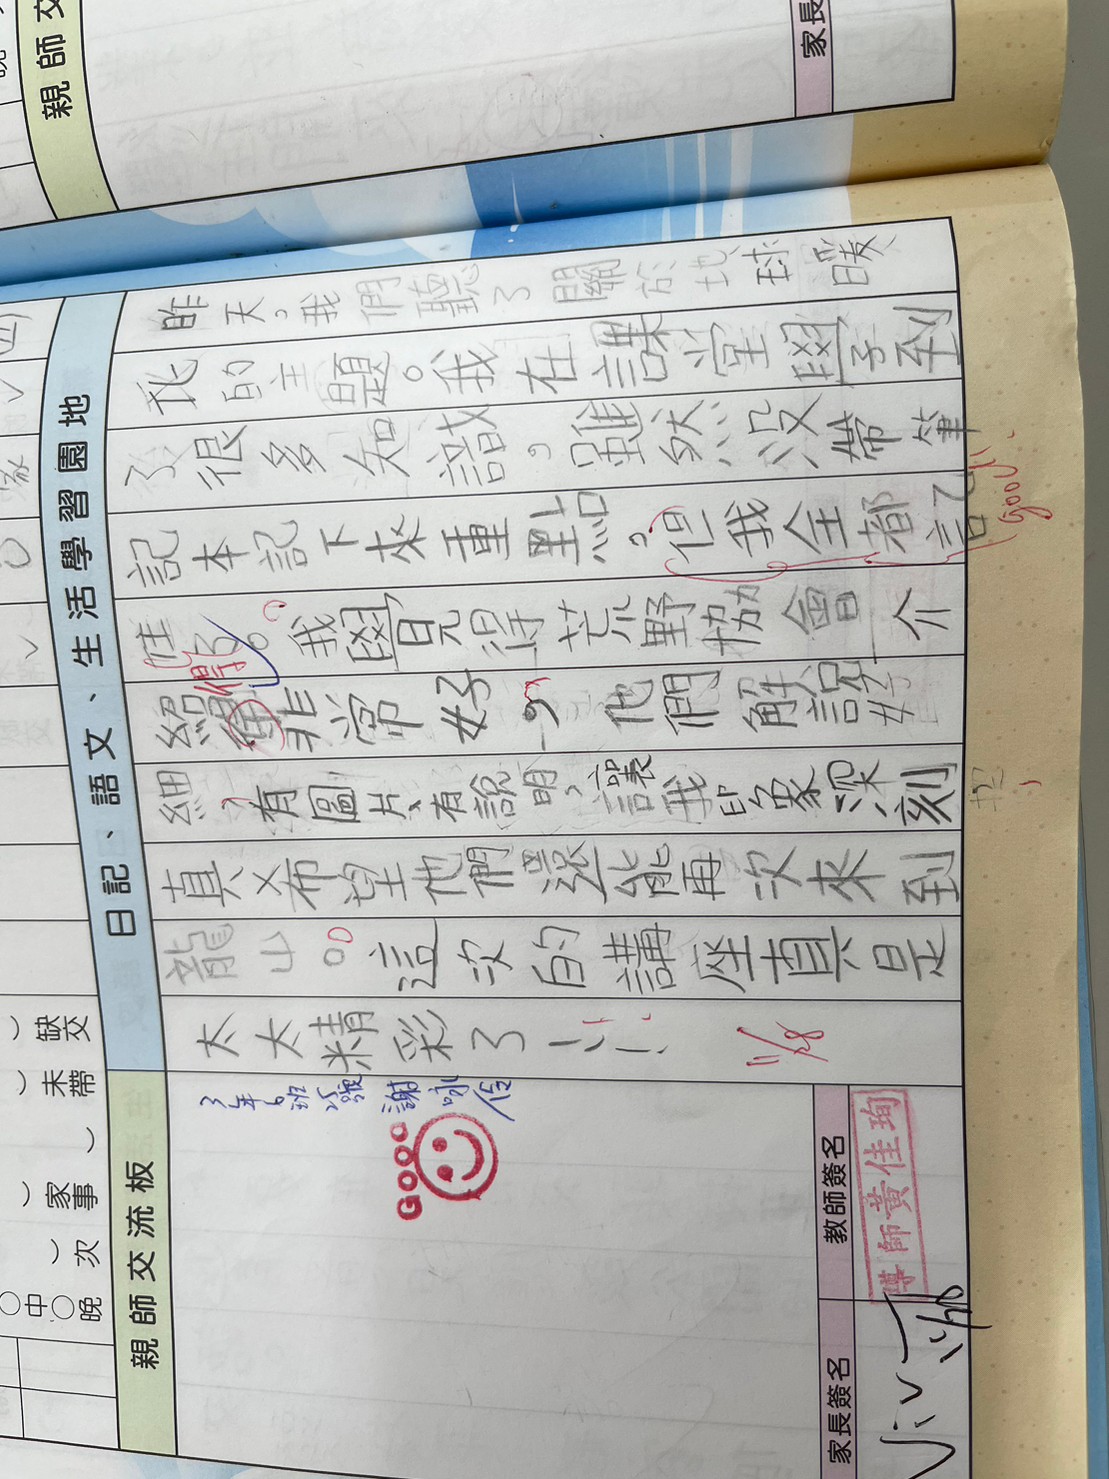 親師交
家長
日記、語文、生活學習園地
昨天。我們聽了關於地球暖
化的主題。我在課堂學到
了很多知識。雖然沒帶筆
記本記下來重點。但我全都記
Good
住了。我覺得荒野協會介
紹得非常好，他們解說好
細，有圖片、有說明，讓我印象深刻
真希望他們還能再次來到
龍山。這次的講座真是
太太精彩了！！
11/18
3年6班
謝咏
GOOD
親師交流板
教師簽名
導師黃佳珣
家長簽名
ViviT
缺交
未帶
家事
次
中
晚